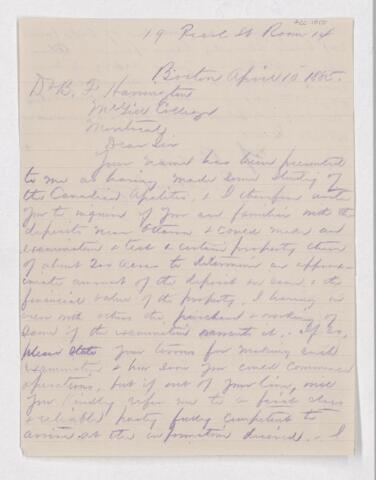 19 Pearl St Room 14
Boston April 10 1885.
Dr B. J. Harrington
McGill College
Montreal
Dear Sir
Your name has been presented
to me as having made some study of
the Canadian Apatites, & I therefore write
you to inquire if you are familiar with the
deposits near Ottawa & could make an
examination & test a certain property there
of about 200 acres to determine an approx-
imate amount of the deposit on same & the
financial value of the property. I having in
view with others the purchase & working of
same if the examination warrants it. If so,
please state your terms for making such
examination & how soon you could commence
operations, but if out of your line, will
you kindly refer me to a first class
& reliable party fully competent to
arrive at the information desired. I